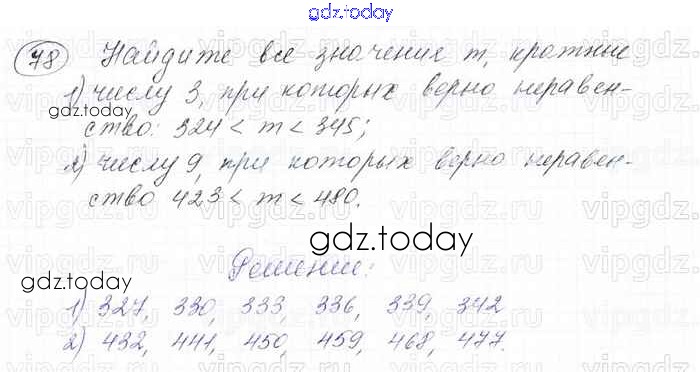 gdz.today
78 Найдите все значения m, кратные
1) числу 3, при которых верно неравен-
gdz.today
ство: 324 < m < 345;
2) числу 9, при которых верно неравен-
ство 423 < m < 480.
gdz.today
Решение:
gdz.today
1) 327, 330, 333, 336, 339, 342
2) 432, 441, 450, 459, 468, 477.